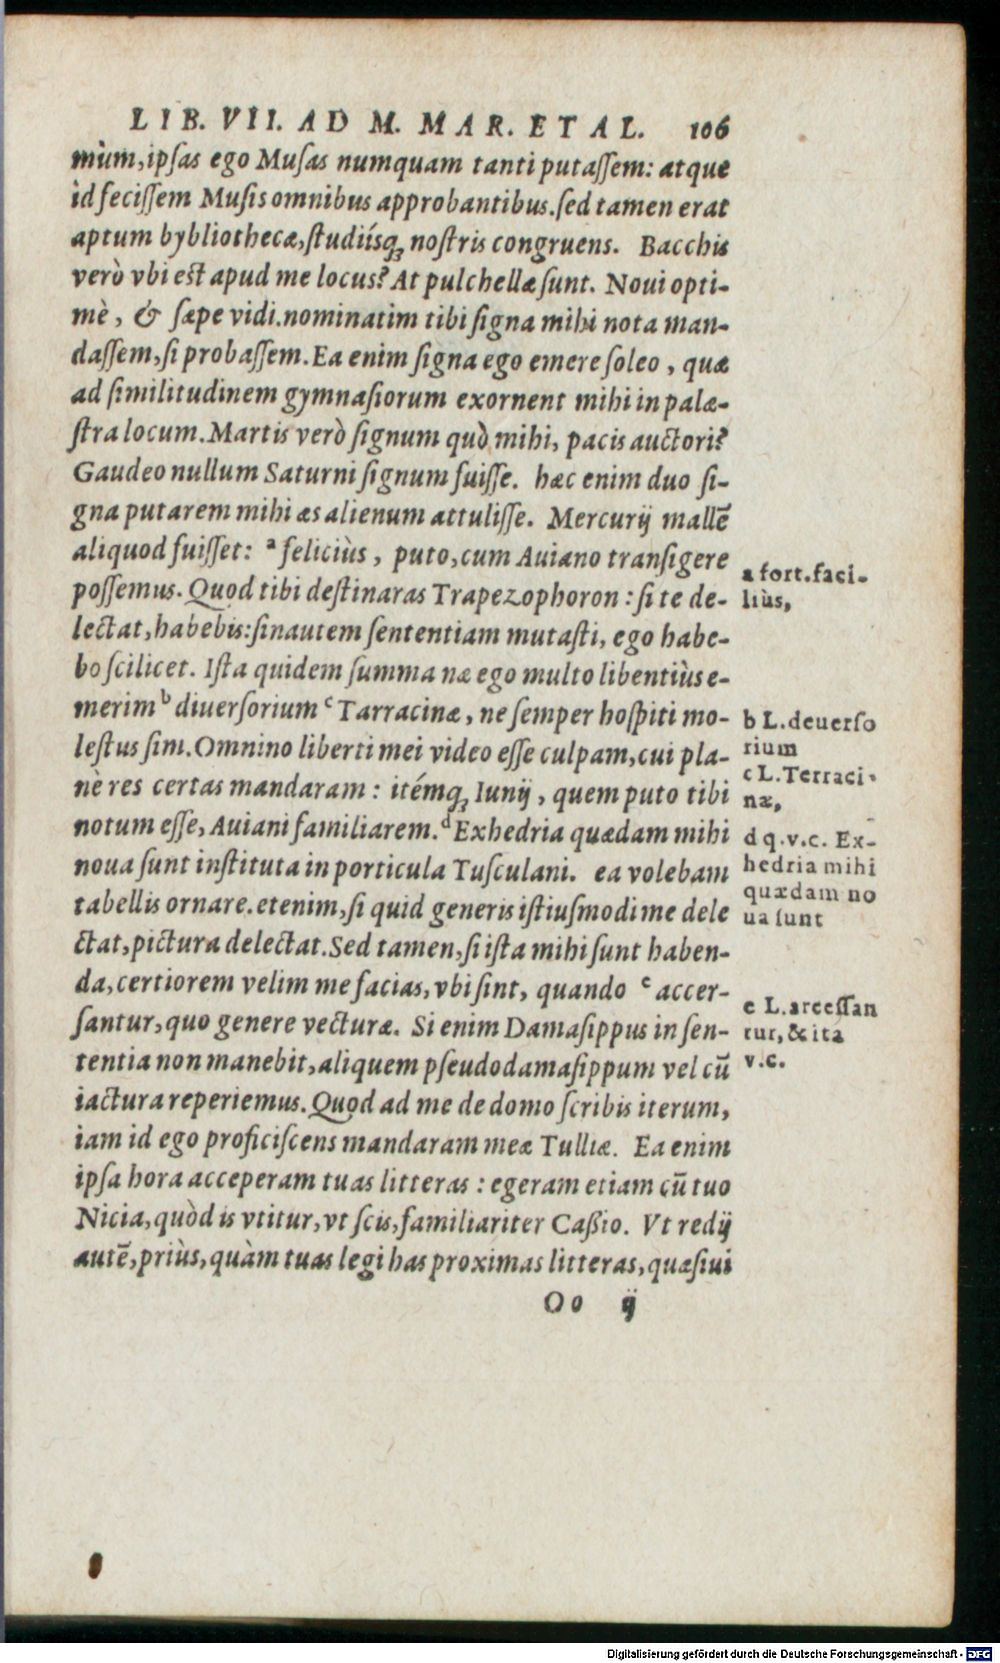 LIB. VII. AD M. MAR. ET AL. 106
mùm, ipſas ego Muſas numquam tanti putaſſem: atque
id feciſſem Muſis omnibus approbantibus. ſed tamen erat
aptum bybliothecæ, ſtudiíſq; noſtris congruens. Bacchis
verò vbi est apud me locus? At pulchellæ ſunt. Noui opti-
mè, & ſæpe vidi. nominatim tibi ſigna mihi nota man-
daſſem, ſi probaſſem. Ea enim ſigna ego emere ſoleo, quæ
ad ſimilitudinem gymnaſiorum exornent mihi in palæ-
ſtra locum. Martis verò ſignum quò mihi, pacis auctori?
Gaudeo nullum Saturni ſignum fuiſſe. hæc enim duo ſi-
gna putarem mihi æs alienum attuliſſe. Mercurij mallē
aliquod fuiſſet: ᵃ feliciùs, puto, cum Auiano tranſigere
poſſemus. Quod tibi deſtinaras Trapezophoron: ſi te de-
lectat, habebis: ſinautem ſententiam mutaſti, ego habe-
bo ſcilicet. Iſta quidem ſumma næ ego multo libentiùs e-
merim ᵇ diuerſorium ᶜ Tarracinæ, ne ſemper hoſpiti mo-
leſtus ſim. Omnino liberti mei video eſſe culpam, cui pla-
nè res certas mandaram: itémq; Iunij, quem puto tibi
notum eſſe, Auiani familiarem. ᵈ Exhedria quædam mihi
noua ſunt inſtituta in porticula Tuſculani. ea volebam
tabellis ornare. etenim, ſi quid generis iſtiuſmodi me dele
ctat, pictura delectat. Sed tamen, ſi iſta mihi ſunt haben-
da, certiorem velim me facias, vbi ſint, quando ᵉ accer-
ſantur, quo genere vecturæ. Si enim Damaſippus in ſen-
tentia non manebit, aliquem pſeudodamaſippum vel cū
iactura reperiemus. Quod ad me de domo ſcribis iterum,
iam id ego proficiſcens mandaram meæ Tulliæ. Ea enim
ipſa hora acceperam tuas litteras: egeram etiam cū tuo
Nicia, quòd is vtitur, vt ſcis, familiariter Caßio. Vt redij
autē, priùs, quàm tuas legi has proximas litteras, quæſiui
Oo ij
a fort. faci-
liùs,
b L. deuerſo
rium
c L. Terraci-
næ,
d q. v. c. Ex-
hedria mihi
quædam no
ua ſunt
e L. arceſſan
tur, & ita
v. c.
Digitalisierung gefördert durch die Deutsche Forschungsgemeinschaft - DFG